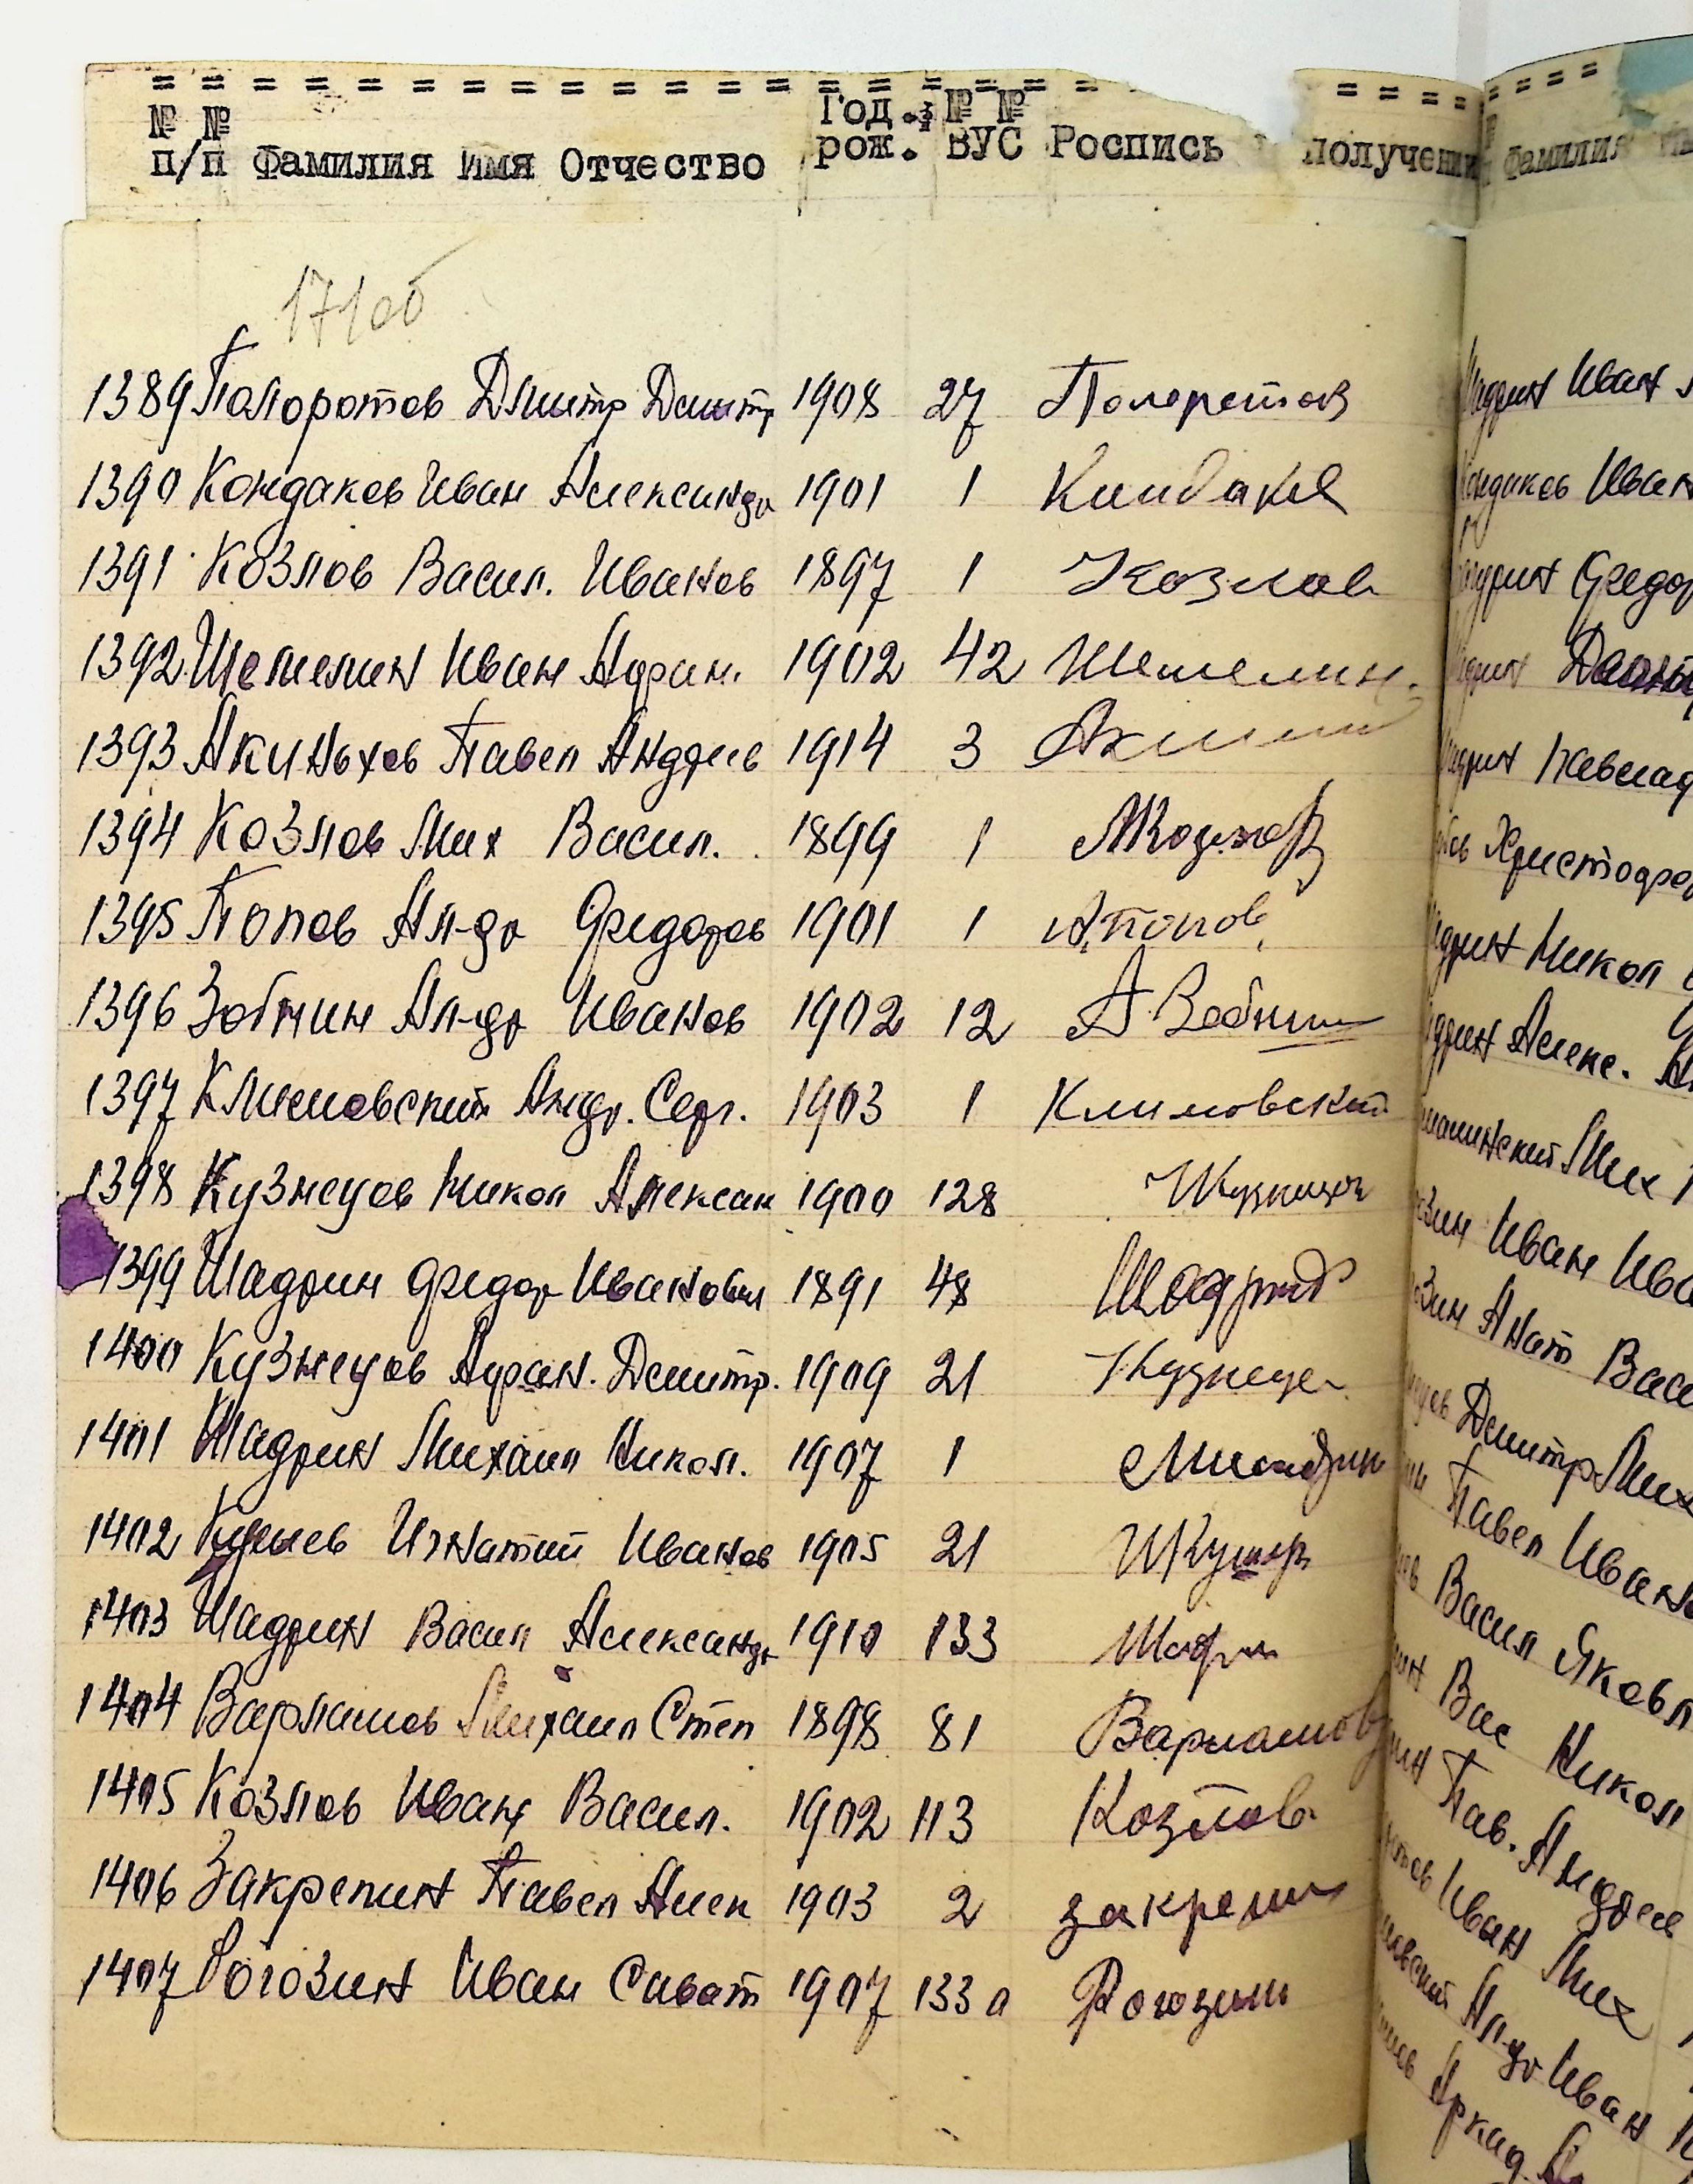 № № Год. № №
п/п Фамилия Имя Отчество рож. ВУС Роспись получени Фамилия
171об
1389 Папоротов Дмитр Дмитр 1908 27
1390 Кондаков Иван Александр 1901 1 Кондаков
1391 Козлов Васил. Иванов 1897 1 Козлов
1392 Шемелин Иван Афан. 1902 42 Шемелин.
1393 Акиньхов Павел Андреев 1914 3
1394 Козлов Мих Васил. 1899 1 МКозлов
1395 Попов Ал-др Федоров 1901 1 А.Попов
1396 Зобнин Ал-др Иванов 1902 12 А Зобнин
1397 Климовский Андр. Серг. 1903 1 Климовский
1398 Кузнецов Никол Алексан 1900 128
1399 Шадрин Федор Иванович 1891 48 Шадрин
1400 Кузнецов Афан. Дмитр. 1909 21 Кузнецов
1401 Шадрин Михаил Никол. 1907 1
1402 Игнатий Иванов 1905 21
1403 Шадрин Васил Александр 1910 133 Шадрин
1404 Варламов Михаил Степ 1898 81 Варламов
1405 Козлов Иван Васил. 1902 113 Козлов
1406 Закрепин Павел Алек 1903 2 закрепин
1407 Рогозин Иван Сават 1907 133 а Рогозин
Иван
Иван
Федор
Христофор
Никол
Алекс.
Мих
Иван Ива
Анат Васи
Дмитр Мих
Павел Иван
Васил Яковл
Вас Никол
Пав. Андреев
Иван Мих
Ал-др Иван
Аркад